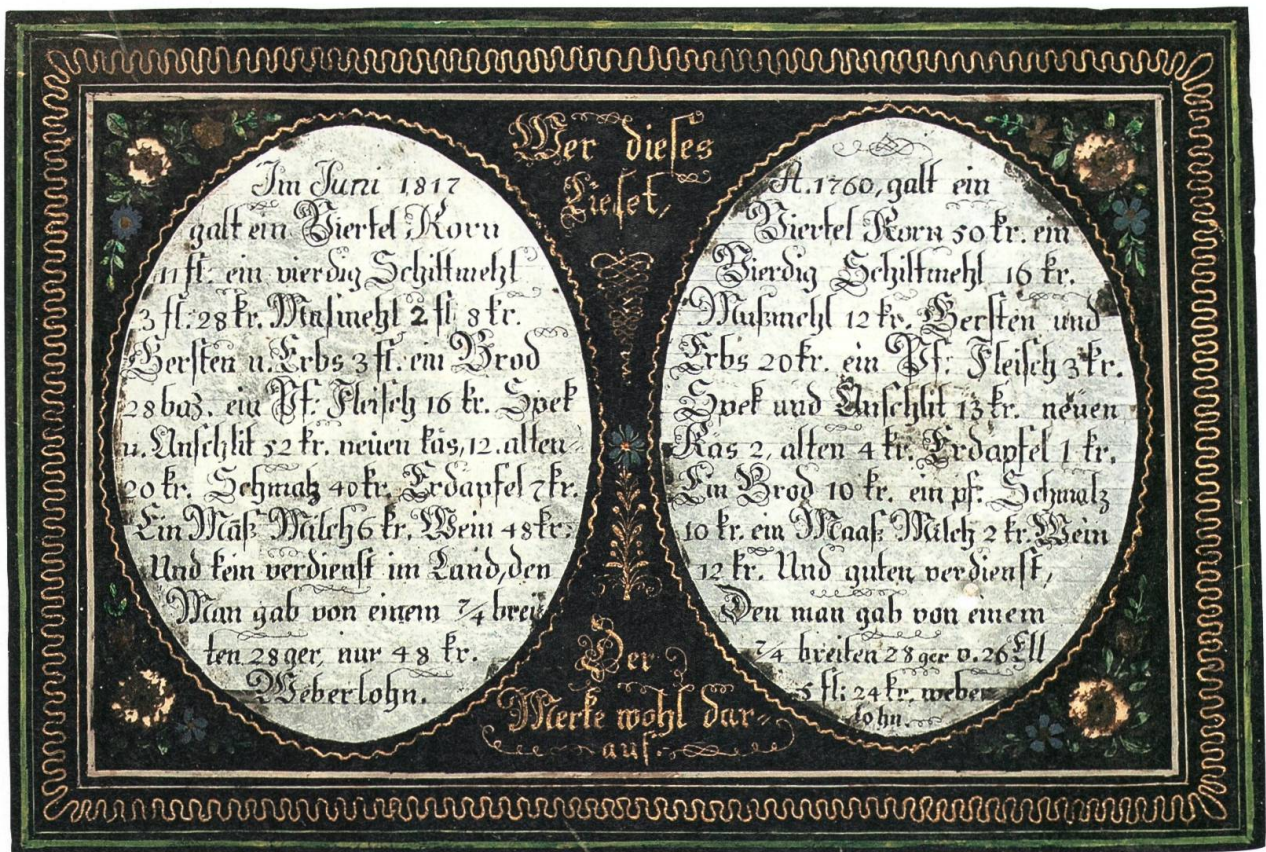 Wer dieses
Lieset,
Im Juni 1817
galt ein Viertel Korn
11 fl. ein vierdig Schiltmehl
3 fl. 28 kr. Musmehl 2 fl 8 kr.
Gersten u. Erbs 3 fl. ein Brod
28 baz. ein Pf: Fleisch 16 kr. Spek
u. Unschlit 52 kr. neüen käs, 12. alten
20 kr. Schmalz 40 kr. Erdapfel 7 kr.
Ein Mäß Milch 6 kr. Wein 48 kr:
Und kein verdienst im Land, den
Man gab von einem 7/4 brei
ten 28ger, nur 48 kr.
Weberlohn.
A. 1760, galt ein
Viertel Korn 50 kr. ein
Vierdig Schiltmehl 16 kr.
Mußmehl 12 kr. Gersten und
Erbs 20 kr. ein Pf: Fleisch 3 kr.
Spek und Unschlit 13 kr. neüen
Käs 2, alten 4 kr. Erdapfel 1 kr.
Ein Brod 10 kr. ein pf: Schmalz
10 kr. ein Maaß Milch 2 kr. Wein
12 kr. Und guten verdienst,
Den man gab von einem
7/4 breiten 28ger v. 26 Ell
5 fl: 24 kr. weber
lohn.
Der
Merke wohl dar-
auf.